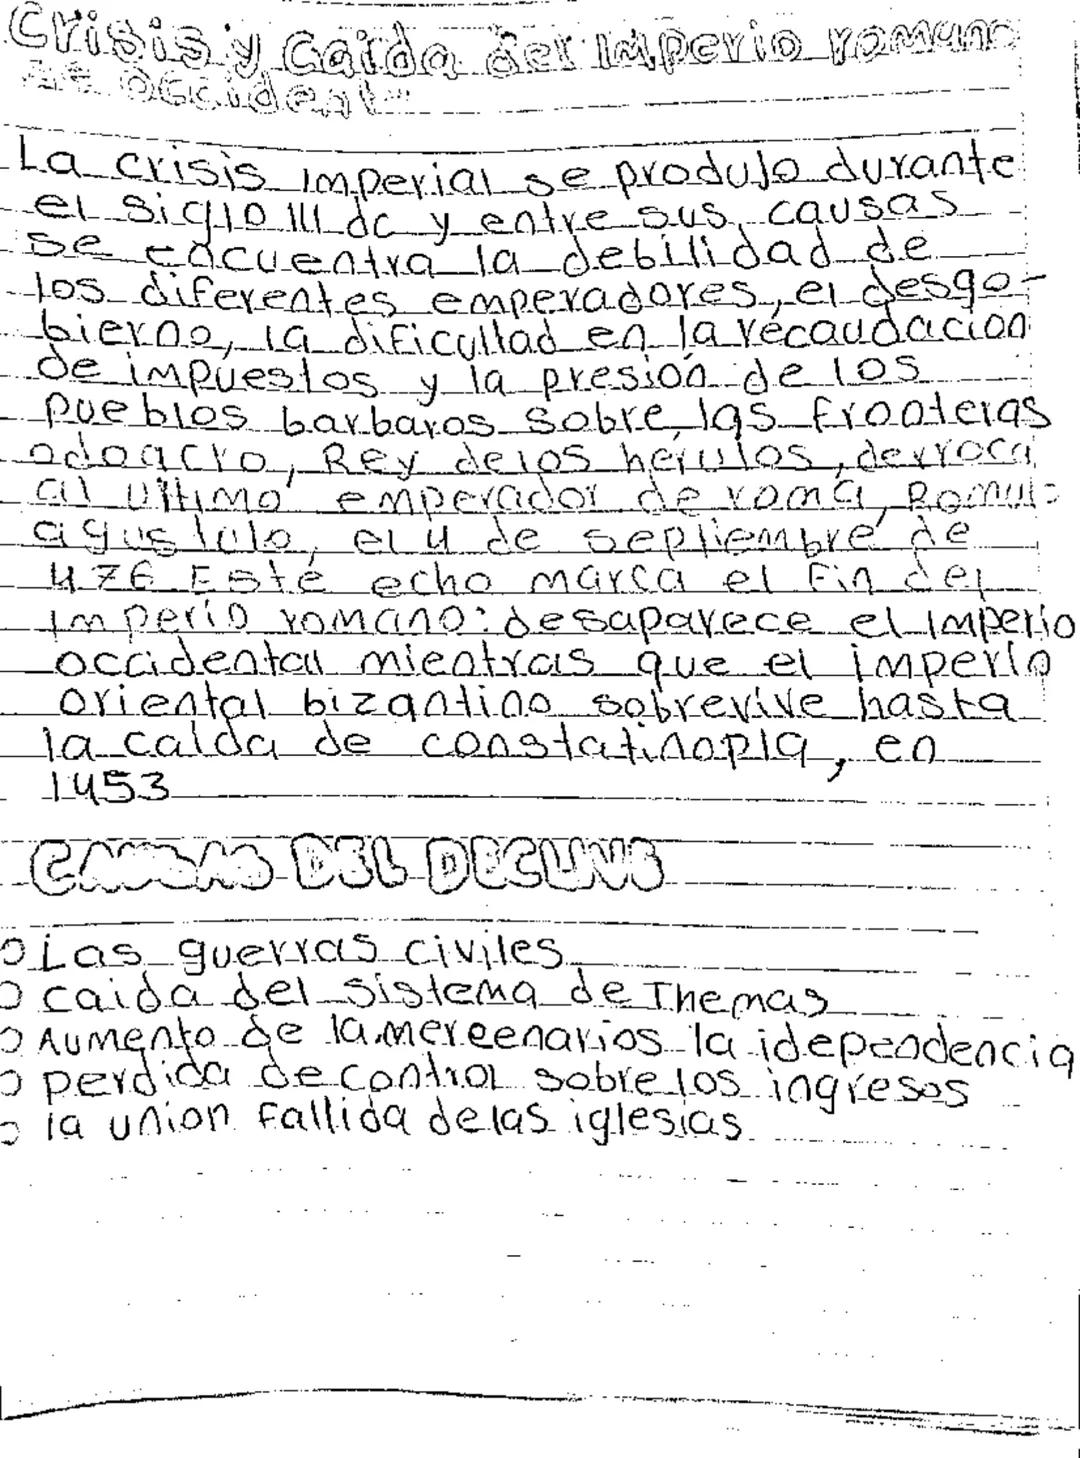 Crisis y Caida del Imperio romano
de Occidente
La crisis imperial se produjo durante
el siglo III dc y entre sus causas
se encuentra la debilidad de
los diferentes emperadores, el desgo-
bierno, la dificultad en la recaudacion
de impuestos y la presión de los
pueblos barbaros sobre las fronteras
odoacro, Rey de los hérulos, derroca
al ultimo emperador de roma, Romul
agustulo, el 4 de septiembre de
476 Esté echo marca el Fin del
imperio romano: desaparece el imperio
occidental mientras que el imperio
oriental bizantino sobrevive hasta
la caida de constatinopla, en
1453
CAUSAS DEL DECLIVE
o Las guerras civiles
o caida del sistema de Themas
o Aumento de la mereenarios la idependencia
o perdida de control sobre los ingresos
o la union fallida de las iglesias